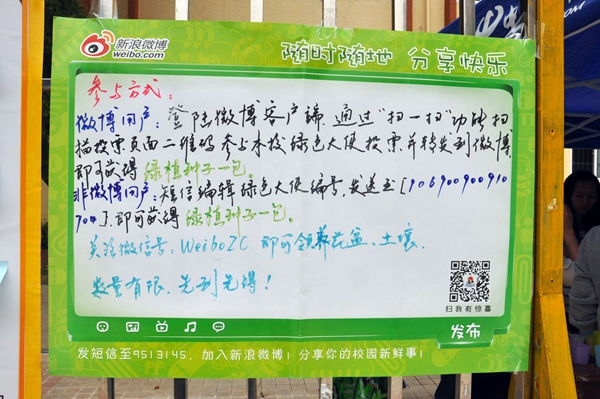 新浪微博
weibo.com
随时随地 分享快乐
参与方式：
微博用户：登陆微博客户端，通过“扫一扫”功能扫
描投票页面二维码参与本校绿色大使投票，并转发到微博，
即可获得绿植种子一包。
非微博用户：短信编辑绿色大使编号，发送至[106900900910
704]，即可获得绿植种子一包。
关注微信号：WeiboZC 即可领养花盆、土壤。
数量有限，先到先得！
扫我有惊喜
发布
发短信至9513145，加入新浪微博！分享你的校园新鲜事！